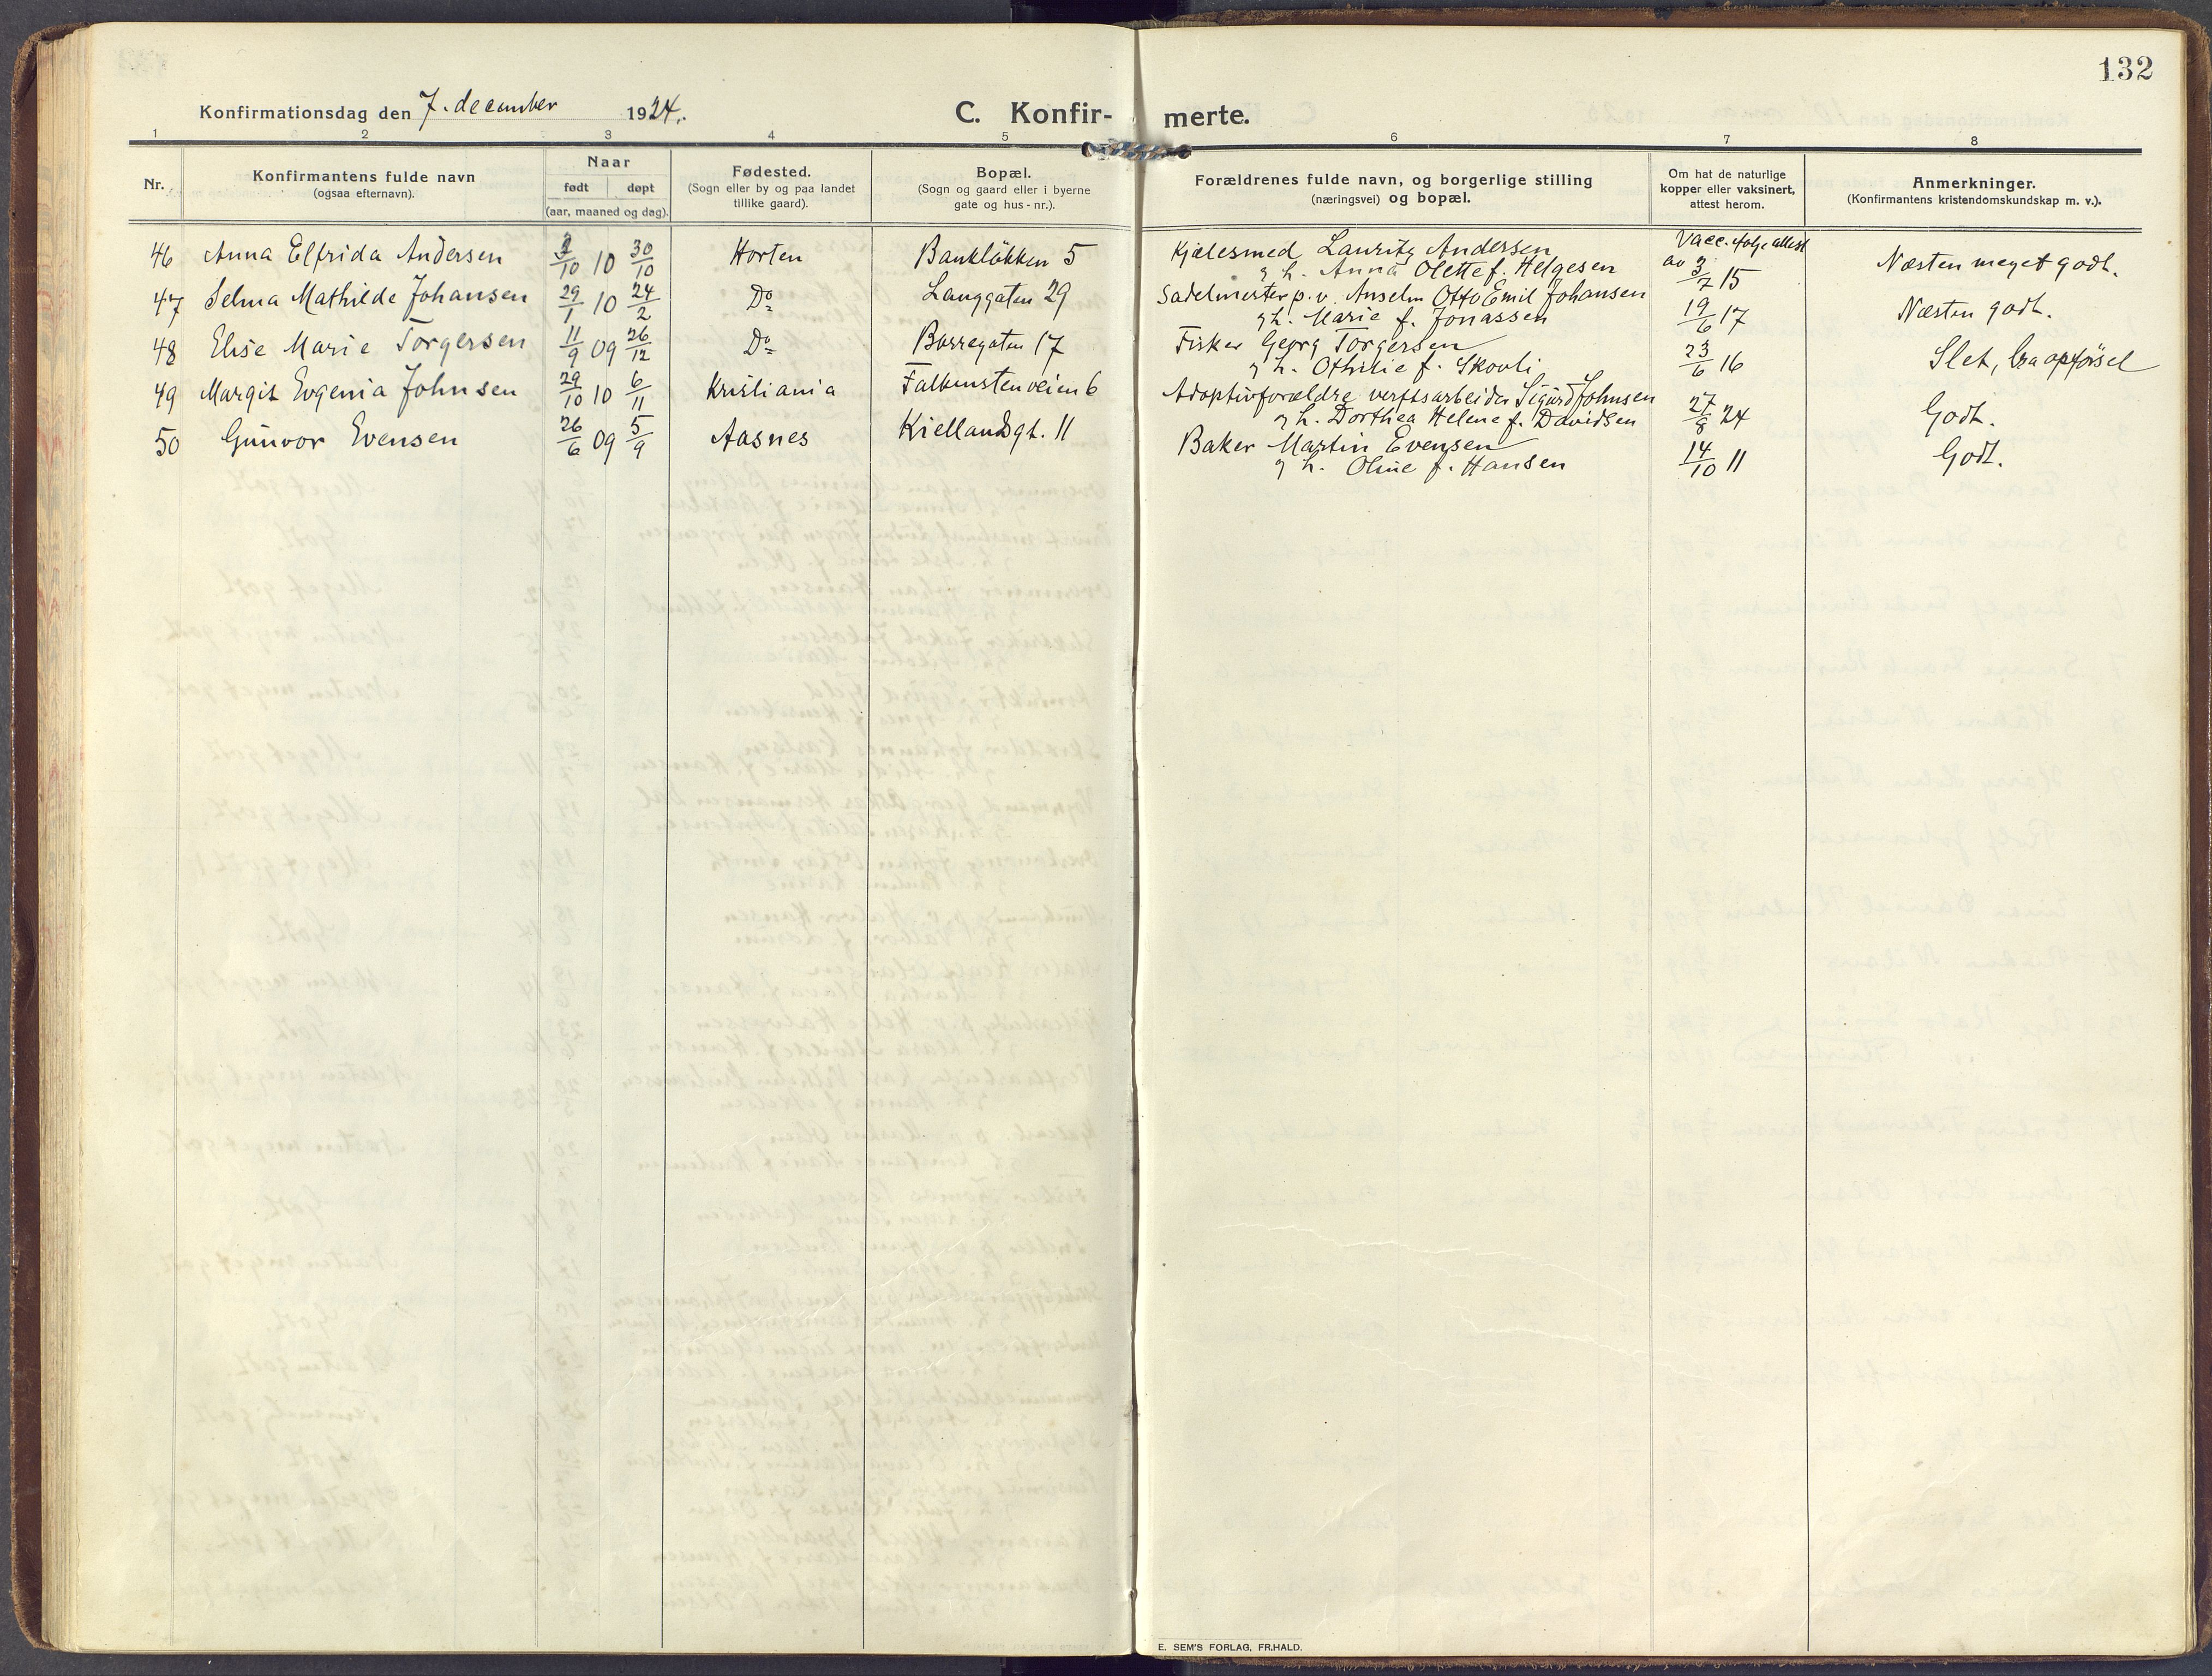 132
Konfirmationsdag den 7. december 1924.
C. Konfir- merte.
1 2 3 4 5 6 7 8
Nr.
Konfirmantens fulde navn
(ogsaa efternavn).
Naar
født døpt
(aar, maaned og dag).
Fødested.
(Sogn eller by og paa landet
tillike gaard).
Bopæl.
(Sogn og gaard eller i byerne
gate og hus-nr.).
Forældrenes fulde navn, og borgerlige stilling
(næringsvei) og bopæl.
Om hat de naturlige
kopper eller vaksinert,
attest herom.
Anmerkninger.
(Konfirmantens kristendomskundskap m. v.).
46 Anna Elfrida Andersen /10 10 30/10 Horten Bankløkken 5 Kjelesmed Lauritz Andersen
g h. Anna Olette f. Helgesen Vacc. følge attest
av 3/7 15 Næsten meget godt.
47 Selma Mathilde Johansen 29/1 10 24/2 Do Langgaten 29 Sadelmester p. v. Anselm Otto Emil Johansen
g h. Marie f. Jonassen 19/6 17 Næsten godt.
48 Elise Marie Torgersen 11/9 09 26/12 Do Borregaten 17 Fisker Georg Torgersen
g h. Othilie f. Skovli 23/6 16 Slet, bra opførsel
49 Margit Evgenia Johnsen 29/10 10 6/11 Kristiania Falkenstenveien 6 Adoptivforældre verftsarbeider Sigurd Johnsen
g h. Dorthea Helene f. Davidsen 27/8 24 Godt.
50 Gunvor Evensen 26/6 09 5/9 Aasnes Kiellandsgt. 11 Baker Martin Evensen
g h. Oline f. Hansen 14/10 11 Godt.
E. SEM'S FORLAG, FR.HALD.